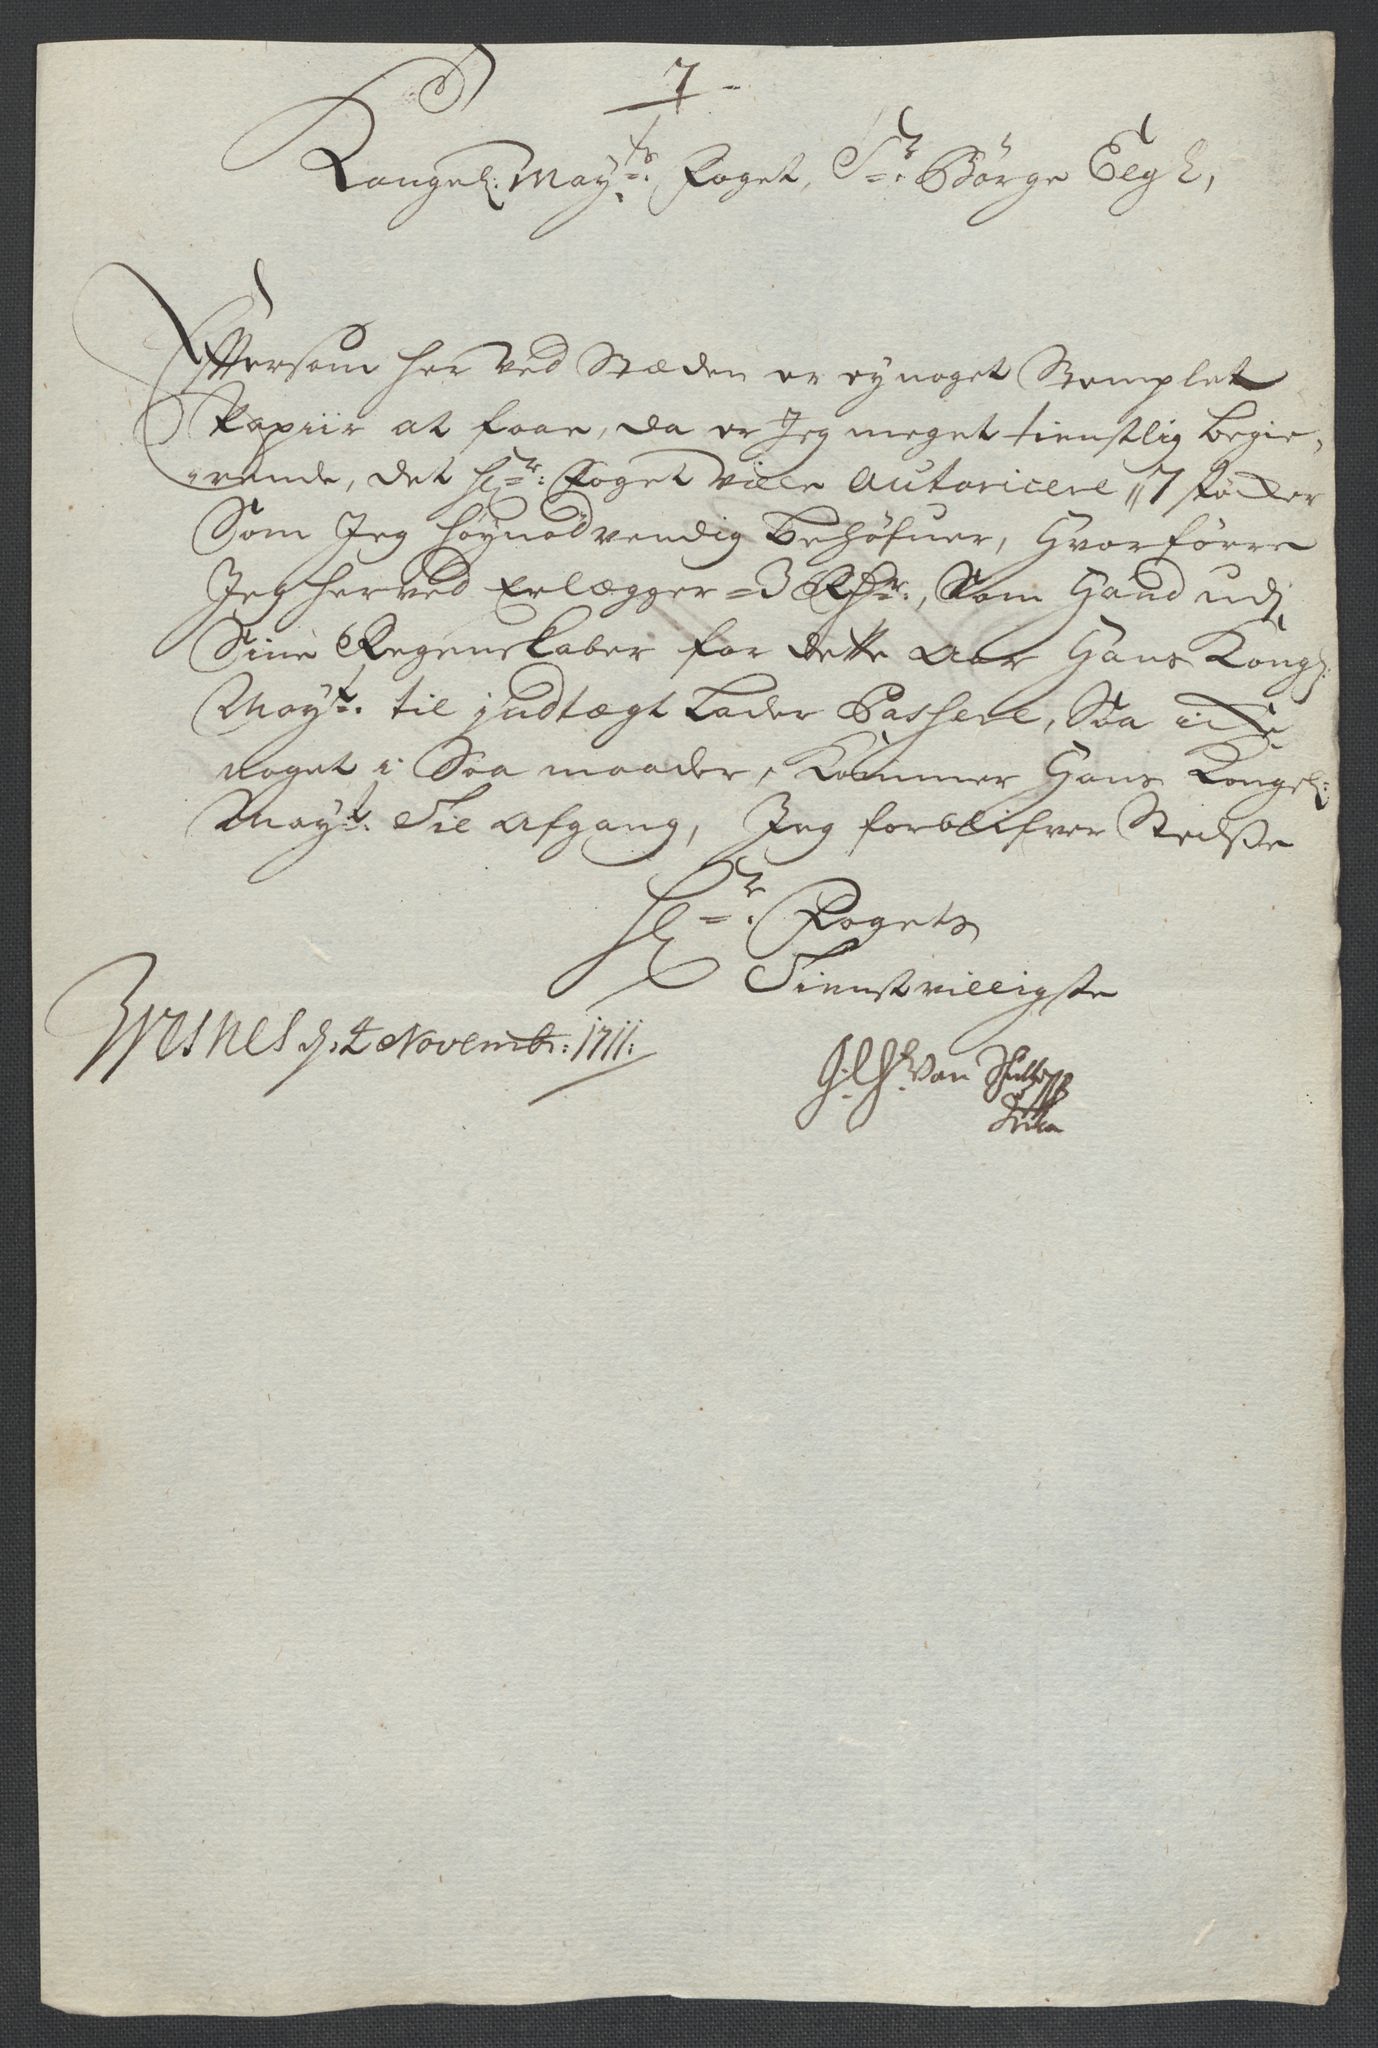 7
Kongel: Mayts: Foget, Sr: Børge Elgh,
Effersom her ved Stæden er ey noget Stemplet
Papiir at faae, da er Jeg meget tienstlig begie,
rende, det Hr: Foget ville Autoricere 7 støcher
Som Jeg høynødvendig behøfuer, Hvorforre
Jeg herved Erlægger 3 Rdr:, Som Hand udj
Sine Regenskaber for dette Aar Hans Kongl:
Mayt: til jndtægt Lader Passere, Saa icke
noget i Saa maader, Kommer Hans Kongel:
Mayt: Til Afgang, Jeg forblifver Stedsse
Hr: Fogets
Tienstvilligste
d: 4 Novembr: 1711:
von